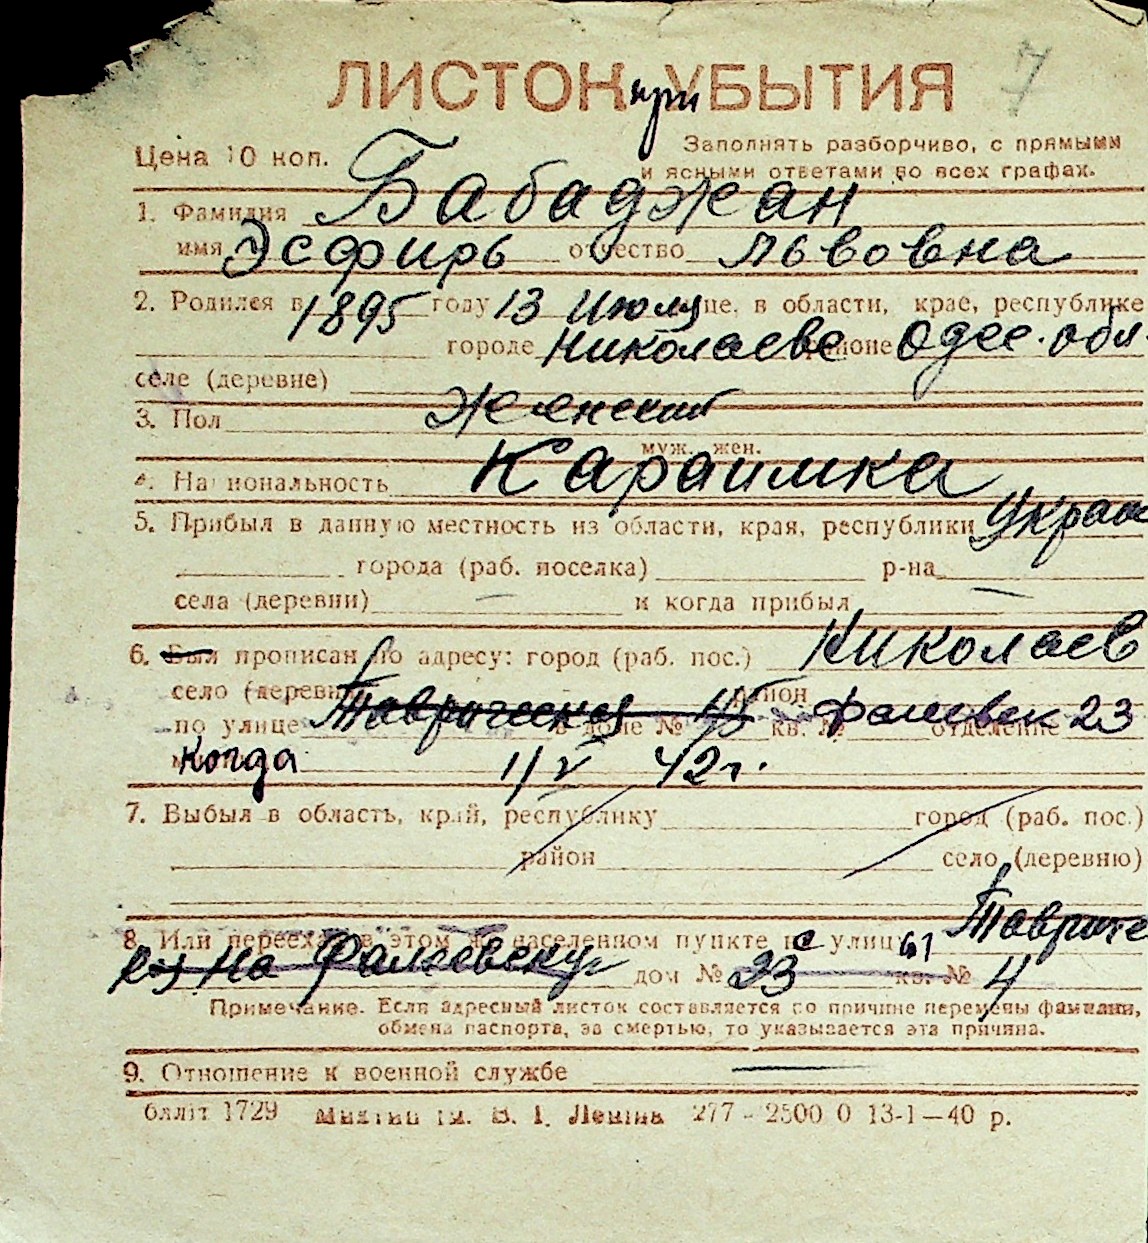 7
ЛИСТОК при УБЫТИЯ
Цена 10 коп.
Заполнять разборчиво, с прямыми
и ясными ответами во всех графах.
1. Фамилия Бабаджан
имя Эсфирь отчество Львовна
2. Родился в 1895 году 13 Июля це, в области, крае, республике
городе Николаеве районе Одес. обл.
селе (деревне)
3. Пол Женский
муж. жен.
4. Национальность Караимка
5. Прибыл в данную местность из области, края, республики Украи
города (раб. поселка) р-на
села (деревни) — и когда прибыл —
6. Был прописан по адресу: город (раб. пос.) Николаев
село (деревня) район
по улице Таврическая в доме № 45 кв. № Фалеевск 23 отделение
когда 1/V 42 г.
7. Выбыл в область, край, республику город (раб. пос.)
район село (деревню)
8. Или переехал в этом же населенном пункте с улицы Тавриче
на Фалеевскую дом № 23 кв. № 4
Примечание. Если адресный листок составляется по причине перемены фамилии,
обмена паспорта, за смертью, то указывается эта причина.
9. Отношение к военной службе —
1729 В. І. Леніна 277 - 2500 0 13-1—40 р.